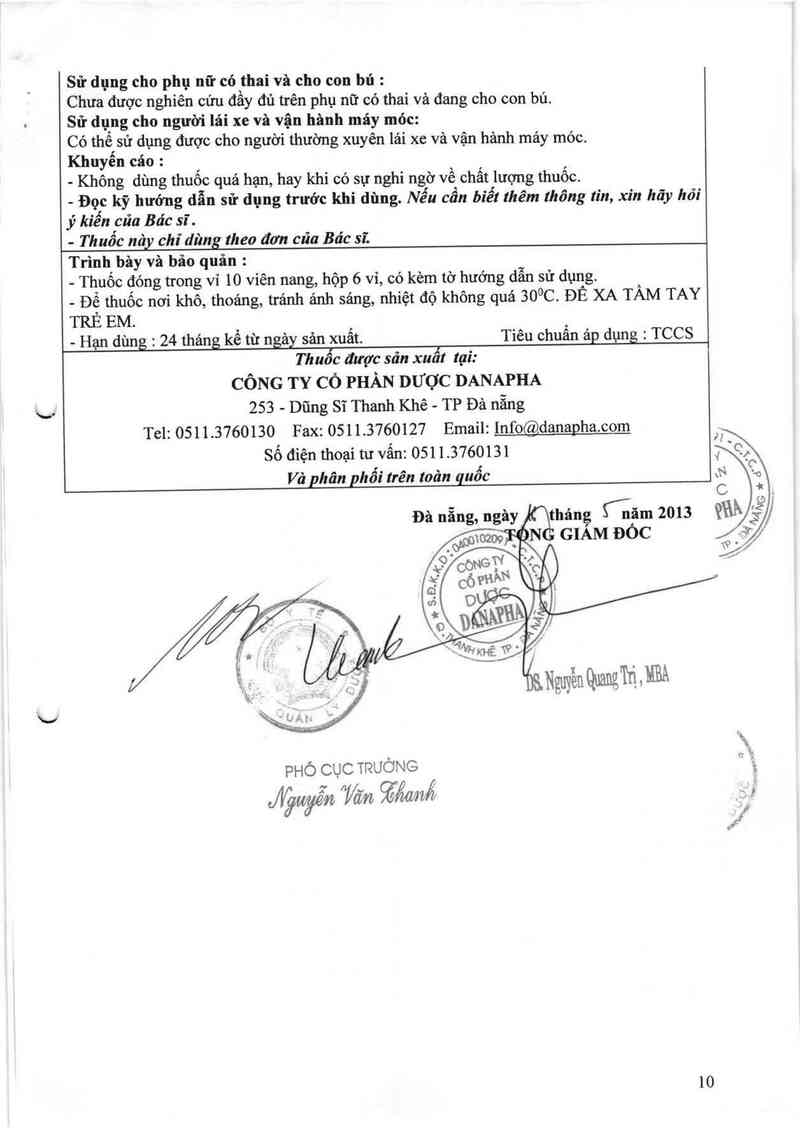 Sử dụng cho phụ nữ có thai và cho con bú :
Chưa được nghiên cứu đầy đủ trên phụ nữ có thai và đang cho con bú.
Sử dụng cho người lái xe và vận hành máy móc:
Có thể sử dụng được cho người thường xuyên lái xe và vận hành máy móc.
Khuyến cáo :
- Không dùng thuốc quá hạn, hay khi có sự nghi ngờ về chất lượng thuốc.
- Đọc kỹ hướng dẫn sử dụng trước khi dùng. Nếu cần biết thêm thông tin, xin hãy hỏi
ý kiến của Bác sĩ.
- Thuốc này chỉ dùng theo đơn của Bác sĩ.
Trình bày và bảo quản :
- Thuốc đóng trong vỉ 10 viên nang, hộp 6 vỉ, có kèm tờ hướng dẫn sử dụng.
- Để thuốc nơi khô, thoáng, tránh ánh sáng, nhiệt độ không quá 30⁰C. ĐỂ XA TẦM TAY
TRẺ EM.
- Hạn dùng : 24 tháng kể từ ngày sản xuất. Tiêu chuẩn áp dụng : TCCS
Thuốc được sản xuất tại:
CÔNG TY CỔ PHẦN DƯỢC DANAPHA
253 - Dũng Sĩ Thanh Khê - TP Đà nẵng
Tel: 0511.3760130 Fax: 0511.3760127 Email: Info@danapha.com
Số điện thoại tư vấn: 0511.3760131
Và phân phối trên toàn quốc
Đà nẵng, ngày tháng 5 năm 2013
TỔNG GIÁM ĐỐC
CÔNG TY
CỔ PHẦN
DƯỢC
DANAPHA
DS. Nguyễn Quang Trị, MBA
PHÓ CỤC TRƯỞNG
Nguyễn Văn Thanh
10